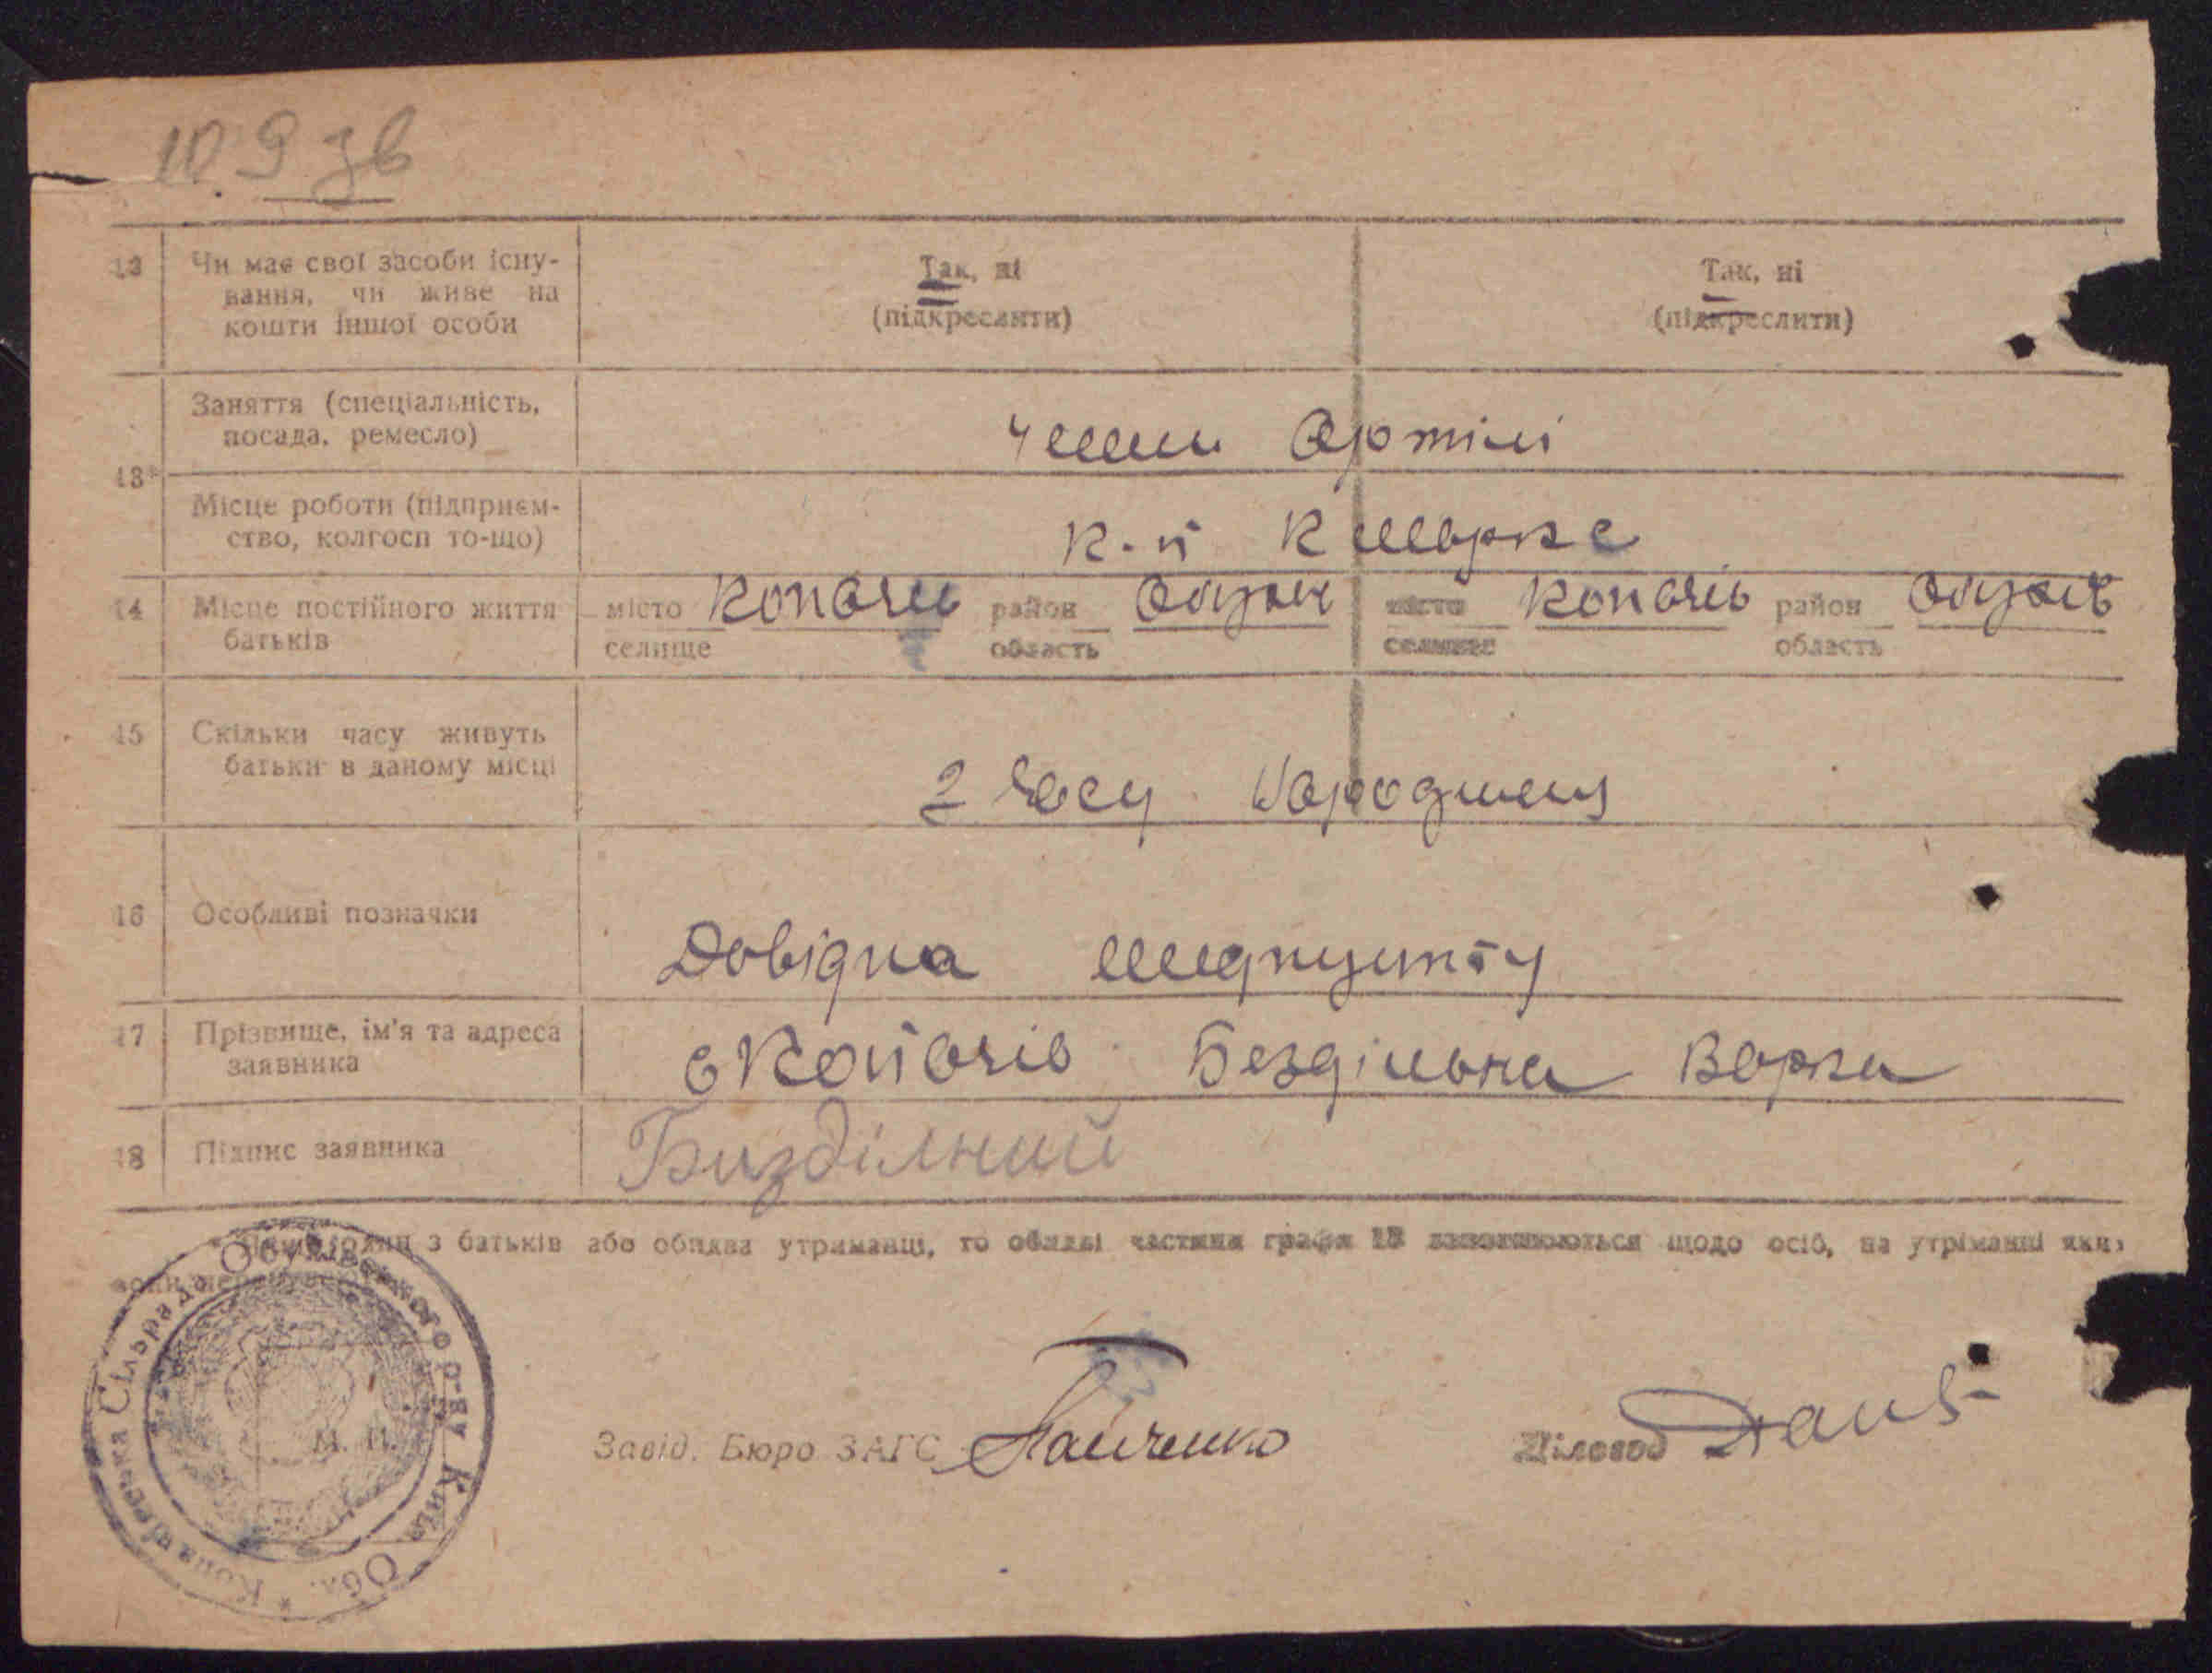 10 9 зв
12 Чи має свої засоби існу- Так, ні Так, ні
вання, чи живе на (підкреслити) (підкреслити)
кошти іншої особи
Заняття (спеціальність, член Артілі
посада, ремесло)
13*
Місце роботи (підприєм- к-п К Маркс
ство, колгосп то-що)
14 Місце постійного життя місто Копачів район Обухів місто Копачів район Обухів
батьків селище область селище область
15 Скільки часу живуть
батьки в даному місці
З часу народження
16 Особливі позначки
Довідка медпункту
17 Прізвище, ім'я та адреса с Копачів Бездільна Варка
заявника
18 Підпис заявника Бизділний
один з батьків або обидва утриманці, то обидві частини графи 13 заповнюються щодо осіб, на утриманні яких
вони перебувають
Копачівська Сільрада Обухівського р-ну Київ. Обл. *
М. П.
Завід. Бюро ЗАГС Панченко Діловод